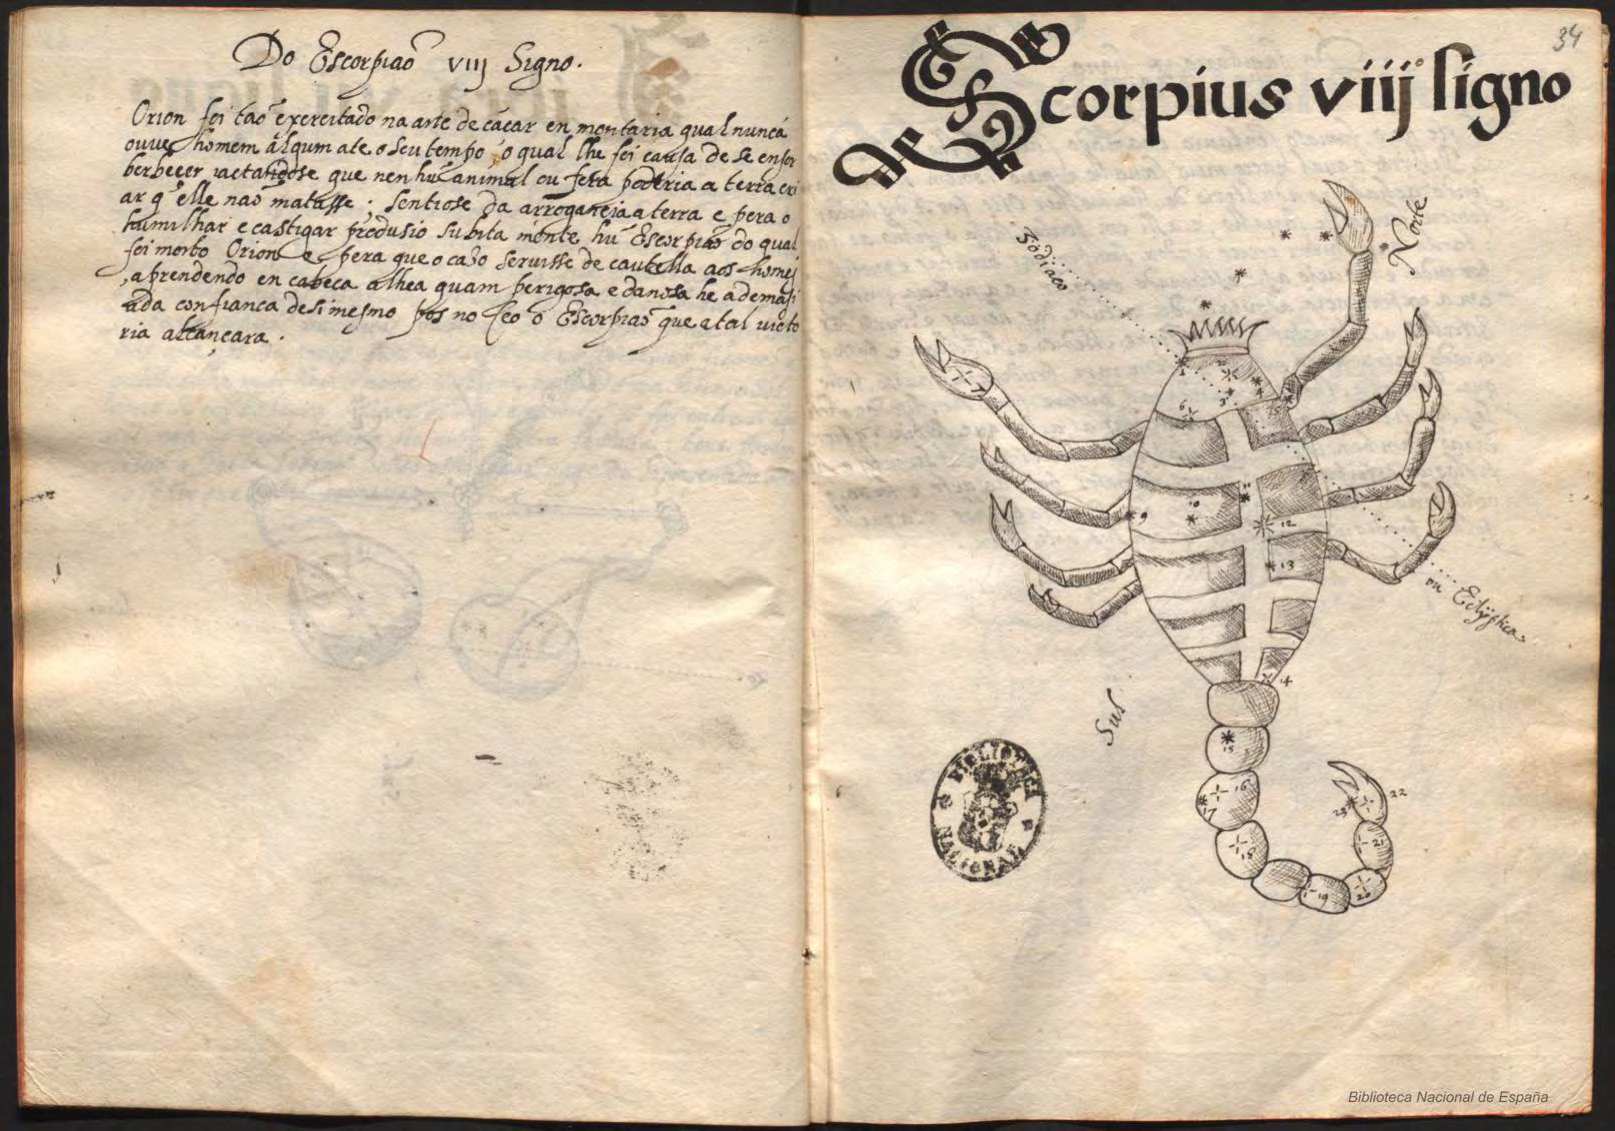 Do Escorpiaõ viij Signo.
Orion foi taõ exercitado na arte de cacar en montaria qual nunca
ouve homem algum ate o seu tempo, o qual lhe foi causa de se ensor
berbecer iactandose que nenhũ animal ou fera poderia a terra cri
ar q̃ elle naõ matasse; sentiose da arrogancia a terra e pera o
humilhar e castigar produsio subita mente hũ Escorpiaõ do qual
foi morto Orion e pera que o caso servisse de cautella aos homẽs
, aprendendo en cabeca alhea quam perigosa e danosa he a demasi
ada confianca de si mesmo pos no Ceo o Escorpiaõ que a tal victo
ria alcancara.
34
Scorpius viij signo
Norte
Zodiaco
ou Eclyptica
Sul
5
6
9
10
11
12
13
14
15
16
17
18
19
20
21
22
23
BIBLIOTECA NACIONAL
Biblioteca Nacional de España